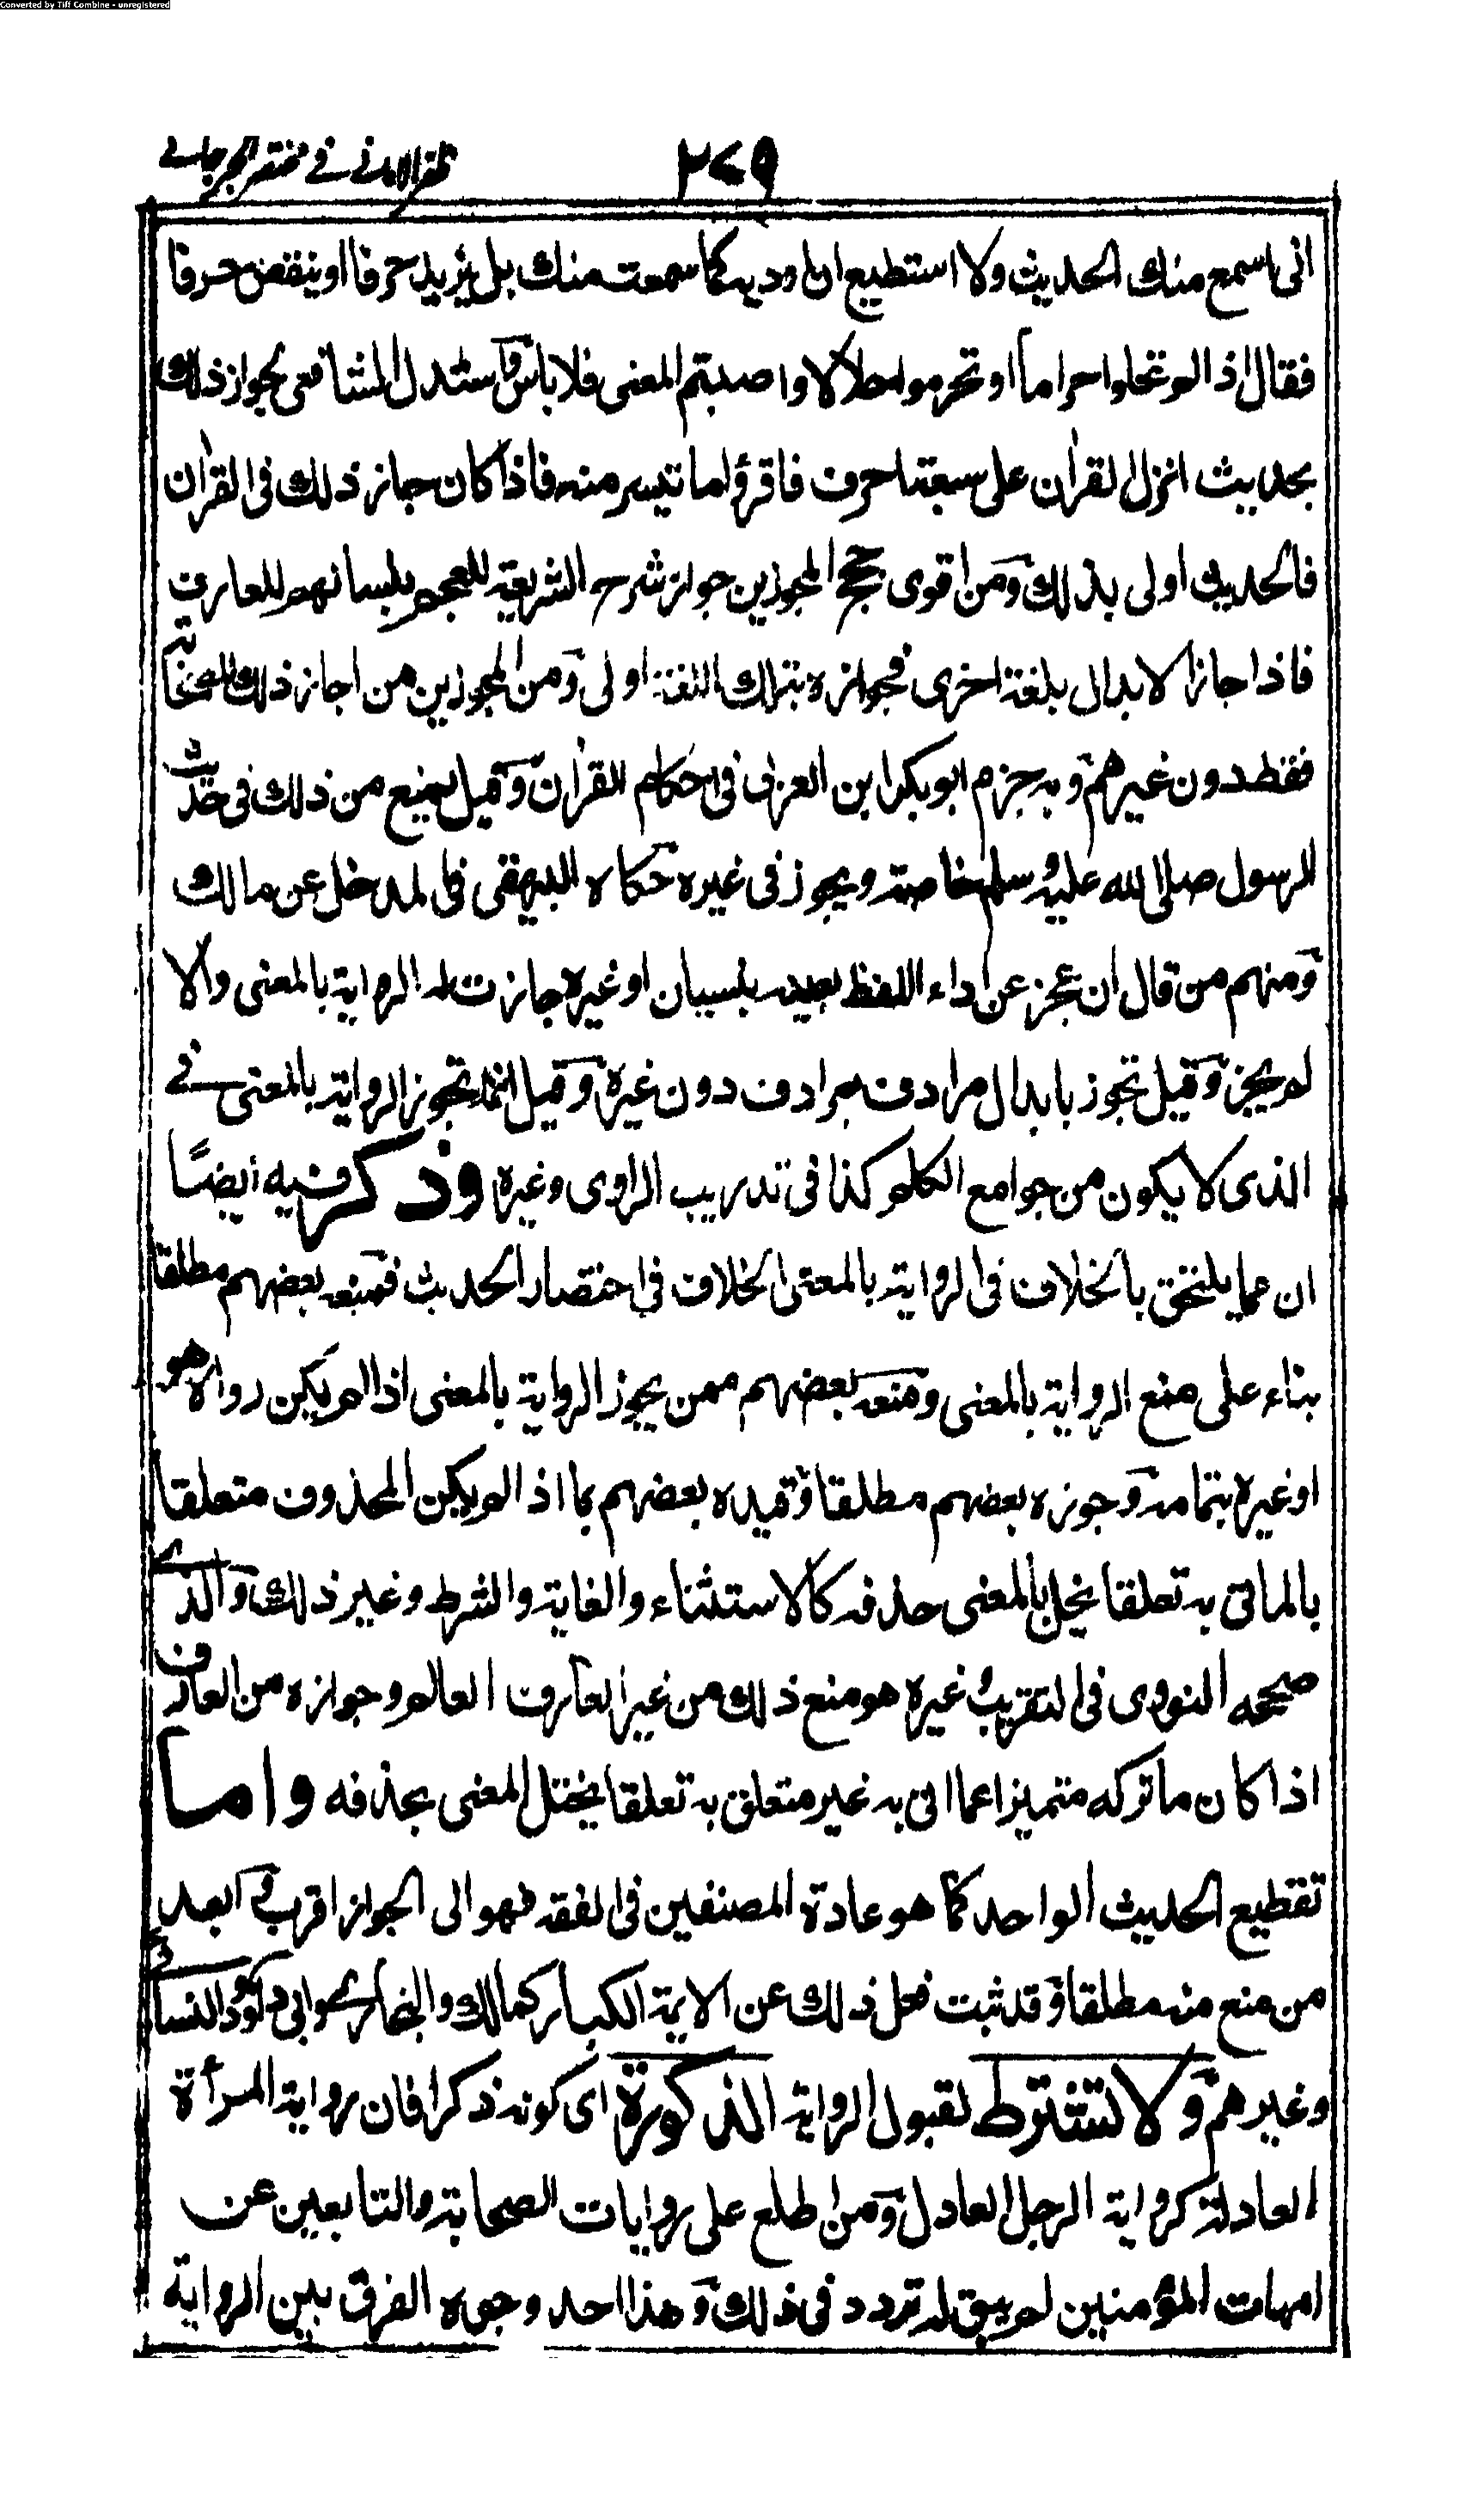 Converted by Tiff Combine - unregistered
ظفر الامانے فے مختصر الجرجانے
۲۷۹
انی اسمع منك الحديث ولا استطيع ان اوديه كما سمعت منك بل يزيد حرفا او ينقص حرفا
فقال اذا لم تحلوا حراما او تحرموا حلالا واصبتم المعنى فلا باس واستدل الشافعى بجواز ذلك
بحديث انزل القران على سبعة احرف فاقرؤا ما تيسر منه فاذا كان جاز ذلك فى القران
فالحديث اولى بذلك ومن اقوى حجج المجوزين جواز شرح الشريعة للعجم بلسانهم للعارف
فاذا جاز الابدال بلغة اخرى فجوازه بتلك اللغة اولى ومن المجوزين من اجاز ذلك للصحابة
فقط دون غيرهم وبه جزم ابو بكر ابن العربى فى احكام القران وقيل يمنع من ذلك فى حديث
الرسول صلى الله عليه وسلم خاصة ويجوز فى غيره حكاه البيهقى فى المدخل عن مالك
ومنهم من قال ان عجز عن اداء اللفظ بعينه بنسيان او غيره جازت له الرواية بالمعنى والا
لم يجز وقيل تجوز بابدال مرادف بمرادف دون غيره وقيل انما تجوز الرواية بالمعنى فے
الذى لا يكون من جوامع الكلم كذا فى تدريب الراوى وغيره وذكر فيه ايضًا
ان مما يلتحق بالخلاف فى الرواية بالمعنى الخلاف فى اختصار الحديث فمنعه بعضهم مطلقا
بناء على منع الرواية بالمعنى ومنعه بعضهم ممن يجوز الرواية بالمعنى اذا لم يكن رواه هو
او غيره بتمامه وجوزه بعضهم مطلقا وقيده بعضهم بما اذا لم يكن المحذوف متعلقا
بالماتى به تعلقا يخل بالمعنى حذفه كالاستثناء والغاية والشرط وغير ذلك والذے
صححه النووى فى التقريب وغيره هو منع ذلك من غير العارف العالم وجوازه من العارف
اذا كان ما تركه متميزا عما اتى به غير متعلق به تعلقا يختل المعنى بحذفه واما
تقطيع الحديث الواحد كما هو عادة المصنفين فى الفقه فهو الى الجواز اقرب وابعد
من منع منه مطلقا وقد ثبت فعل ذلك عن الايمة الكبار كمالك والبخارى وابى داود والنسائے
وغيرهم ولا تشترط لقبول الرواية الذكورة اى كونه ذكرا فان رواية المرأة
العادلة كرواية الرجل العادل ومن اطلع على روايات الصحابة والتابعين عن
امهات المؤمنين لم يبق له تردد فى ذلك وهذا احد وجوه الفرق بين الرواية